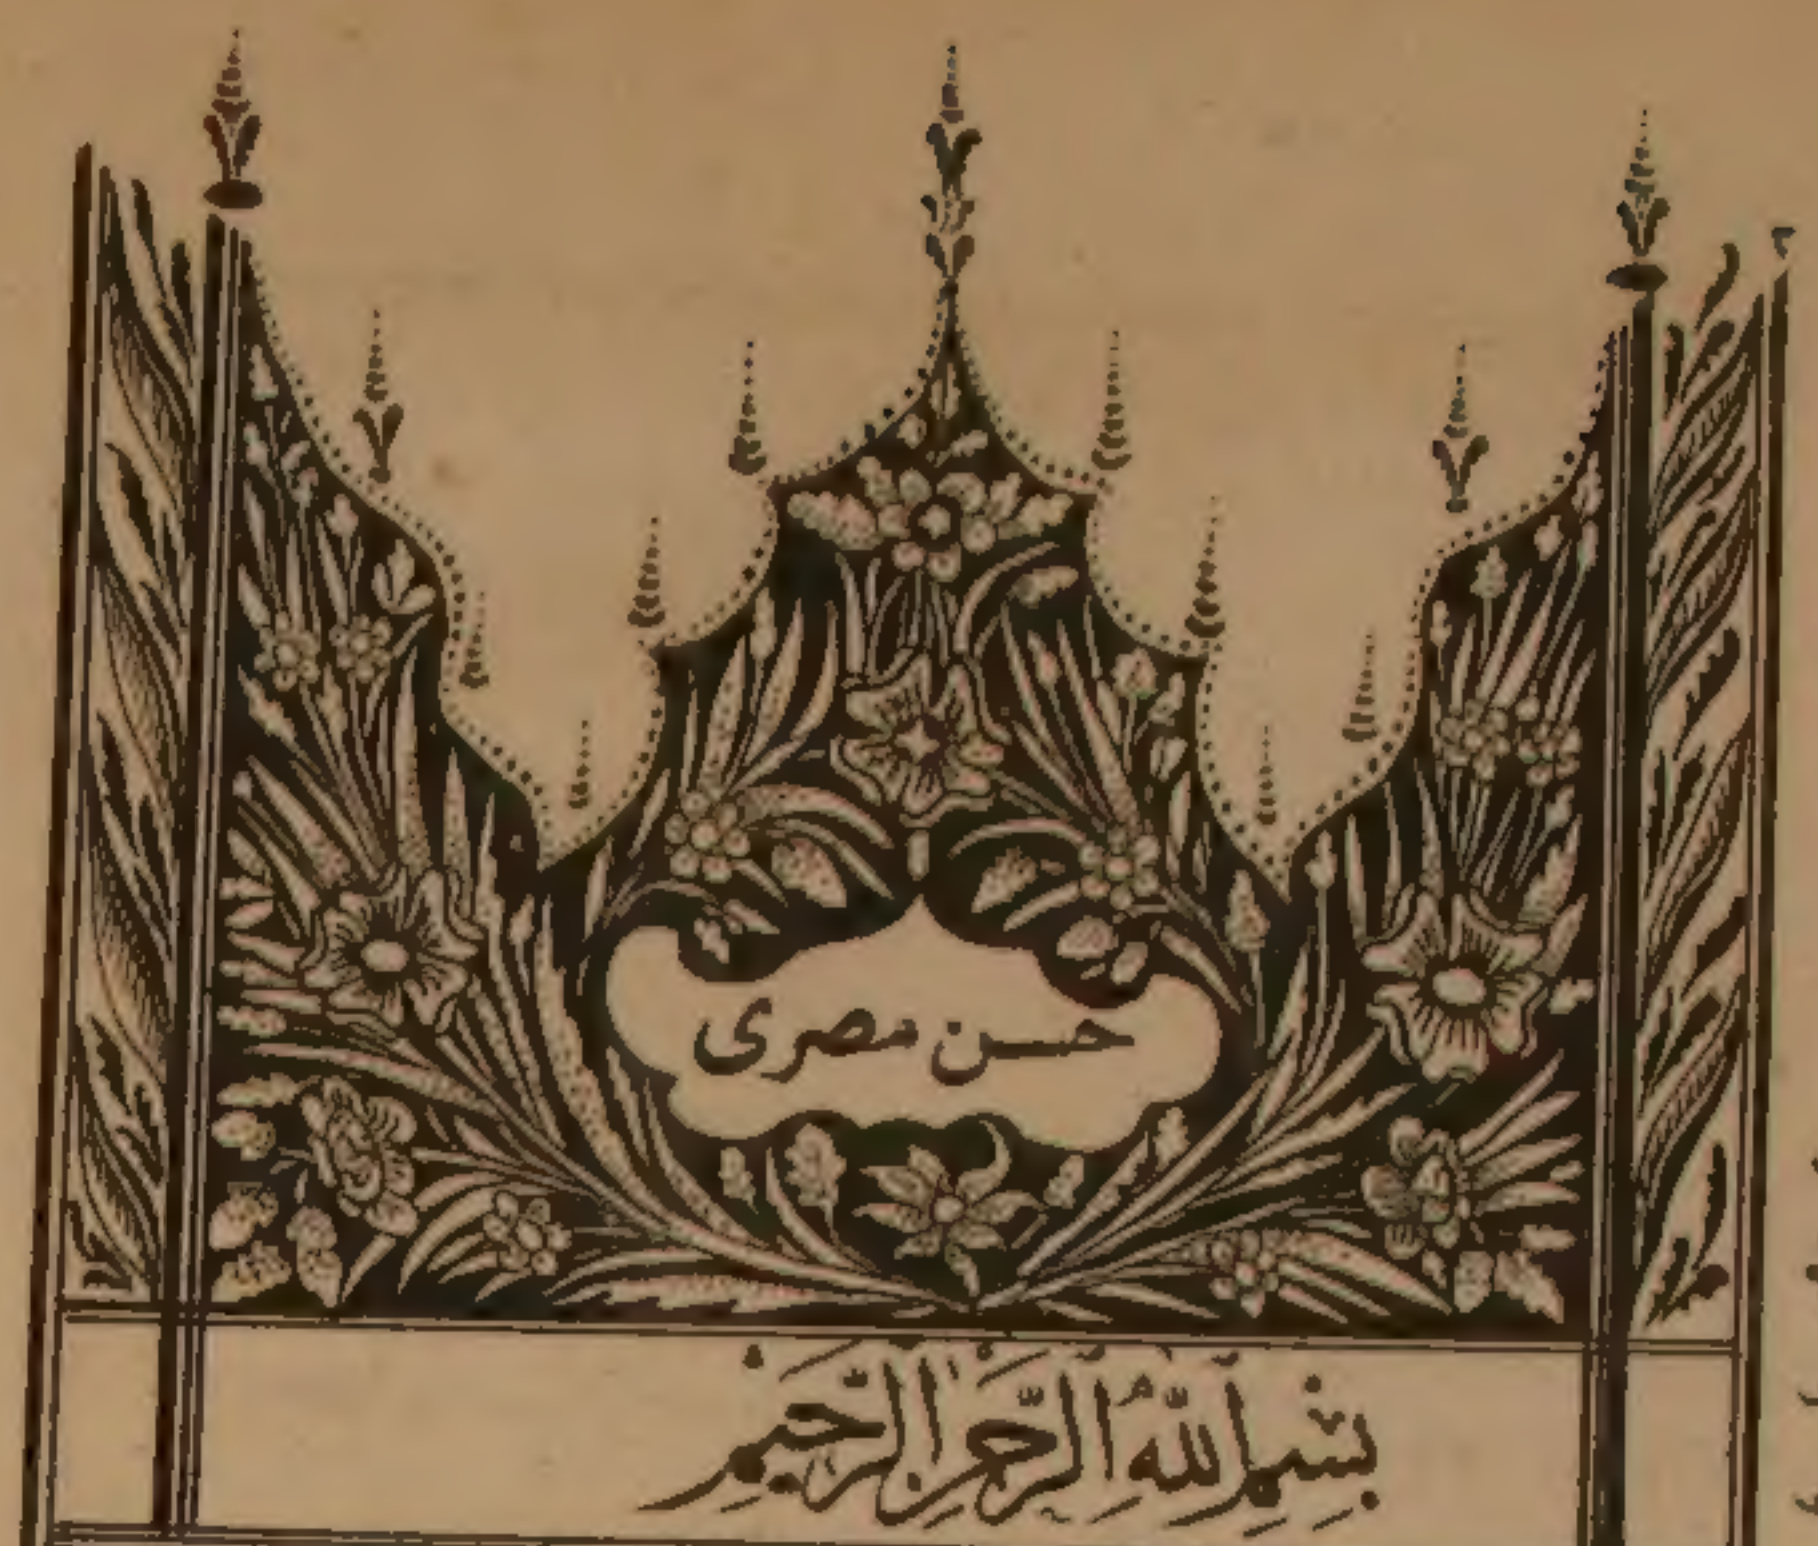 حسن مصرى
بِسْمِ اللّٰهِ الرَّحْمٰنِ الرَّحِيْمِ